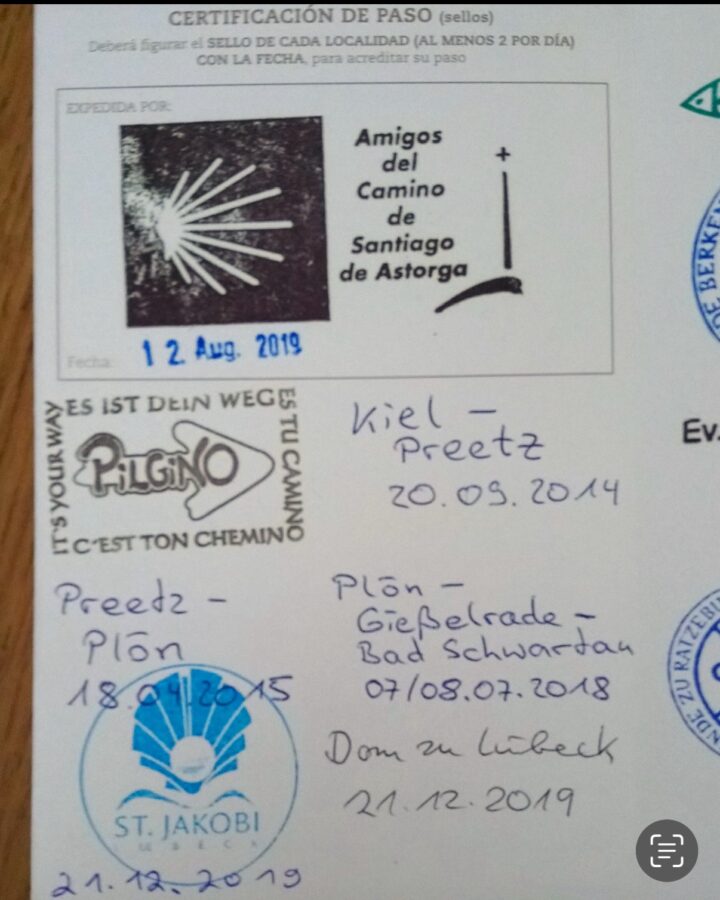 CERTIFICACIÓN DE PASO (sellos)
Deberá figurar el SELLO DE CADA LOCALIDAD (AL MENOS 2 POR DÍA)
CON LA FECHA, para acreditar su paso
EXPEDIDA POR:
Amigos
del
Camino
de
Santiago
de Astorga
Fecha:
12. Aug. 2019
ES IST DEIN WEG
ES TU CAMINO
IT'S YOUR WAY
PiLGiNO
C'EST TON CHEMIN
Kiel –
Preetz
20.09.2014
Preetz –
Plön
18.04.2015
Plön –
Gießelrade –
Bad Schwartau
07/08.07.2018
ST. JAKOBI
LÜBECK
21.12.2019
Dom zu Lübeck
21.12.2019
DE BERKEN
Ev.
NDE ZU RATZEBU